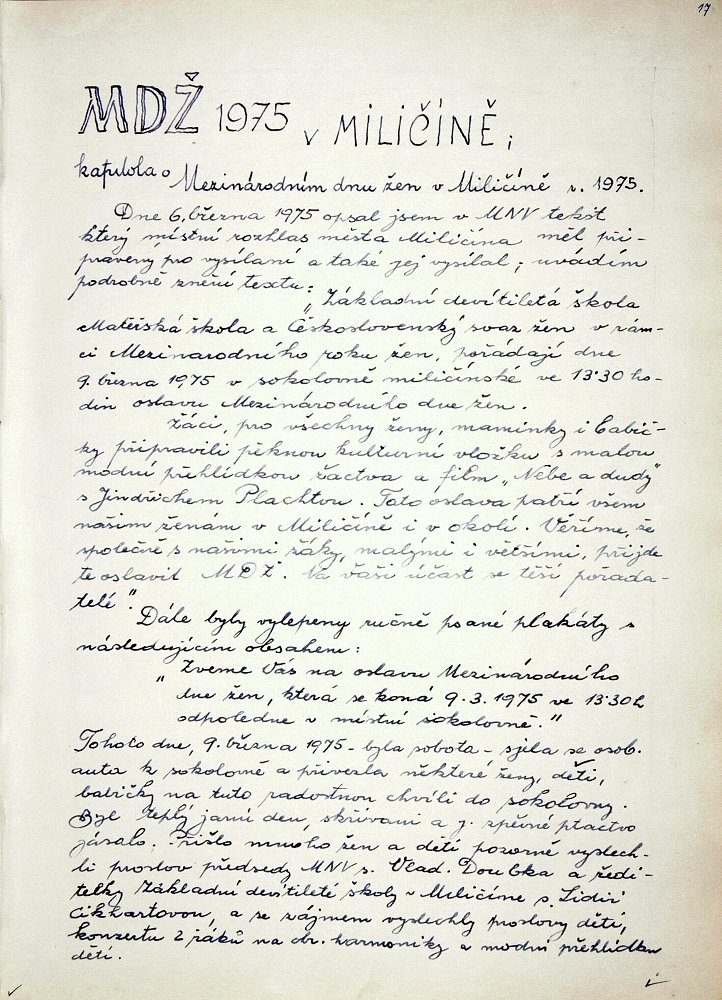 17
MDŽ 1975 v MILIČÍNĚ;
kapitola o Mezinárodním dnu žen v Miličíně r. 1975.
Dne 6. března 1975 opsal jsem v MNV tekst
který místní rozhlas města Miličína měl při-
pravený pro vysílaní a také jej vysílal; uvádím
podrobné znění textu:
„Základní devítiletá škola
Mateřská škola a Československý svaz žen v rám-
ci Mezinarodního roku žen, pořádají dne
9. března 1975 v sokolovně miličínské ve 13·30 ho-
din oslavu Mezinárodního dne žen.
Žáci, pro všechny ženy, maminky i babič-
ky připravili pěknou kulturní vložku s malou
modní přehlídkou žactva a film „Nebe a dudy"
s Jindřichem Plachtou. Tato oslava patří všem
našim ženám v Miličíně i v okolí. Věříme, že
společně s našimi žáky, malými i většími, přijde
te oslavit MDŽ. Na Vaši účast se těší pořada-
telé".
Dále byly vylepeny ručně psané plakáty s
následujícím obsahem:
„Zveme Vás na oslavu Mezinárodního
dne žen, která se koná 9.3.1975 ve 13·30 h
odpoledne v místní sokolovně."
Tohoto dne, 9. března 1975 - byla sobota - sjela se osob.
auta k sokolovně a přivezla některé ženy, děti,
babičky na tuto radostnou chvíli do sokolovny.
Byl teplý jarní den, skřivani a j. zpěvné ptactvo
jásalo. Přišlo mnoho žen a dětí pozorně vyslech-
li proslov předsedy MNV s. Vlad. Doubka a ředi-
telky Základní devítileté školy v Miličíne s. Lidií
Cikhartovou, a se zájmem vyslechly proslovy dětí,
konzertu 2 žáků na chr. harmoniky a modní přehlídku
dětí.